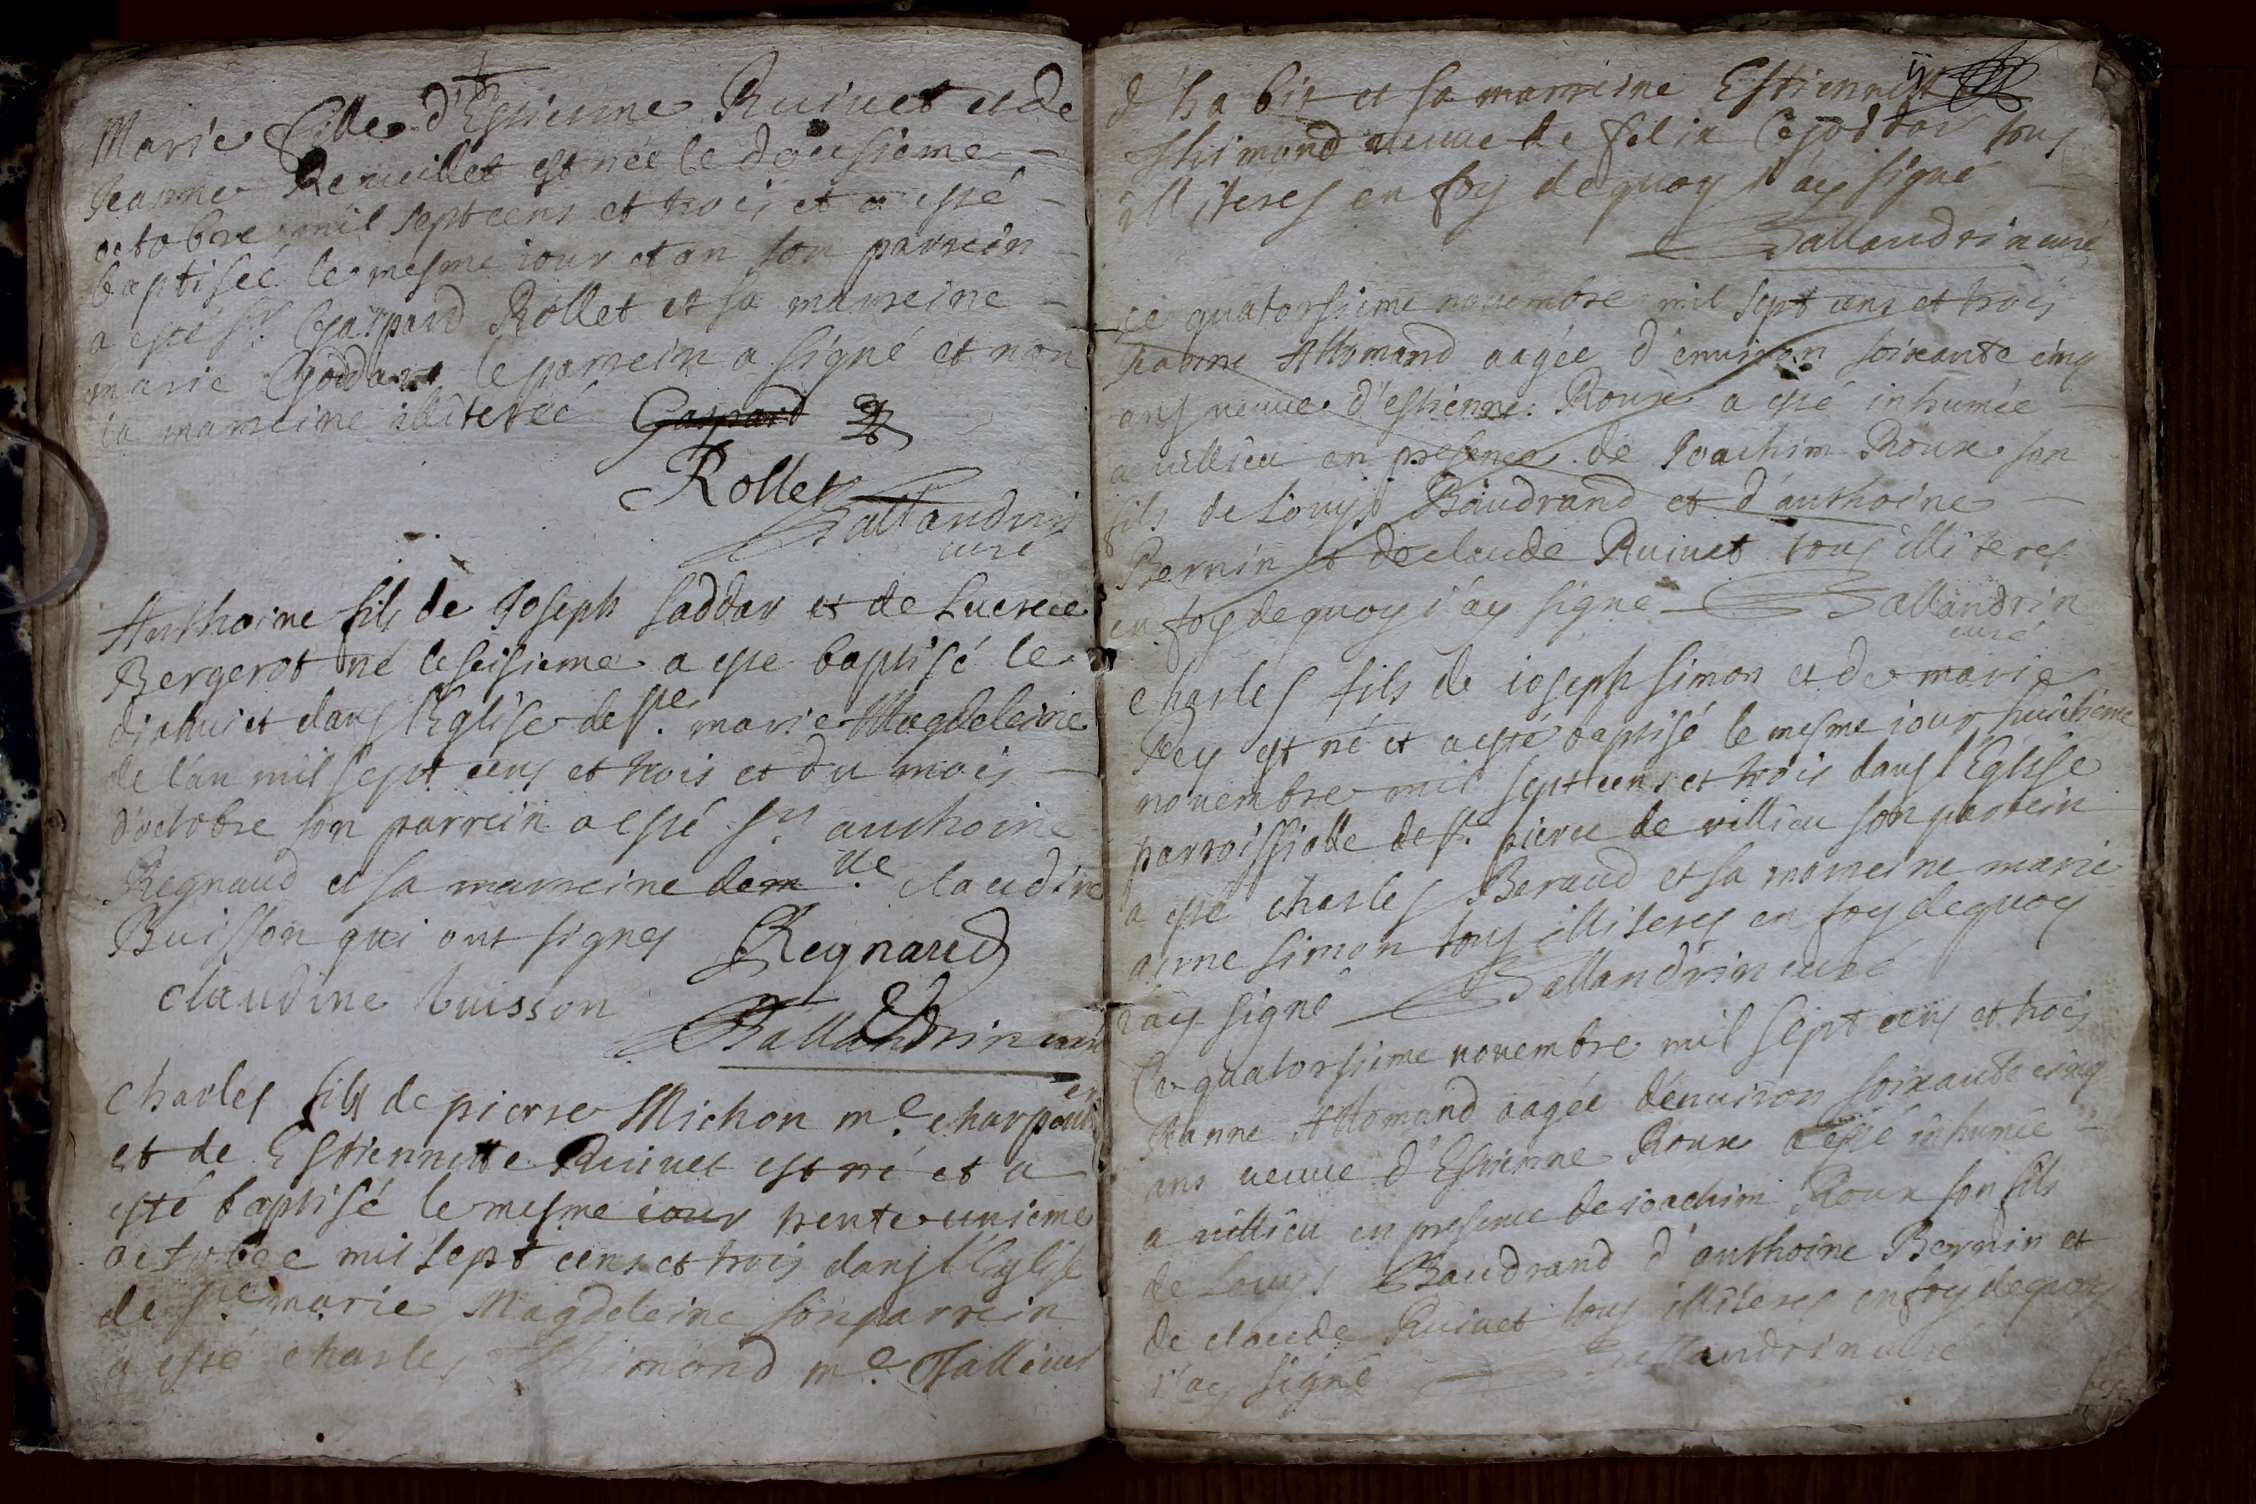 Marie fille d'Estienne Ruivet et de
Jeanne Reveillet est née le douesieme
octobre mil sept cens et trois et a esté
baptisée le mesme iour et an son parrein
a esté sr. Gaspard Rollet et sa marreine
marie Goddar le parrein a signé et non
la marreine illiterée Gaspard
Rollet
Ballandrin
curé
Anthoine fils de Joseph Goddar et de Lucrece
Bergerot né le seisieme a esté baptisé le
dixhuict dans l'Eglise de ste. marie Magdeleine
de l'an mil sept cens et trois et du mois
d'octobre son parrein a esté sr. anthoine
Regnaud et sa marreine demlle. claudine
Buisson qui ont signes Regnaud
claudine buisson
Ballandrin curé
Charles fils de pierre Michon me. charpentier
et de Estiennette Ruivet est né et a
esté baptisé le mesme iour trente unieme
octobre mil sept cens et trois dans l'Eglise
de ste. marie Magdeleine son parrein
a esté charles Thimond me. Tallieur
d'habit et sa marreine Estiennette
Thimond veuve de felix Goddar tous
illiteres en foy de quoy i'ay signé
Ballandrin curé
ce quatorsieme novembre mil sept cens et trois
Jeanne Allomand aagée d'environ soixante cinq
ans veuve d'estienne Roux a esté inhumée
a villieu en presence de Joachim Roux son
fils de Louys Baudrand et d'anthoine
Bernin et de claude Ruivet tous illiteres
en foy de quoy i'ay signé Ballandrin
curé
charles fils de ioseph simon et de marie
Rey est né et a esté baptisé le mesme iour huictieme
novembre mil sept cens et trois dans l'Eglise
parroissialle de st. pierre de villieu son parrein
a esté charles Beraud et sa marreine marie
anne simon tous illiteres en foy de quoy
i'ay signé Ballandrin curé
Ce quatorsieme novembre mil sept cens et trois
Jeanne Allomand aagée d'environ soixante cinq
ans veuve d'Estienne Roux a esté inhumée
a villieu en presence de ioachim Roux son fils
de Louys Baudrand d'anthoine Bernin et
de claude Ruivet tous illiteres en foy de quoy
i'ay signé Ballandrin curé